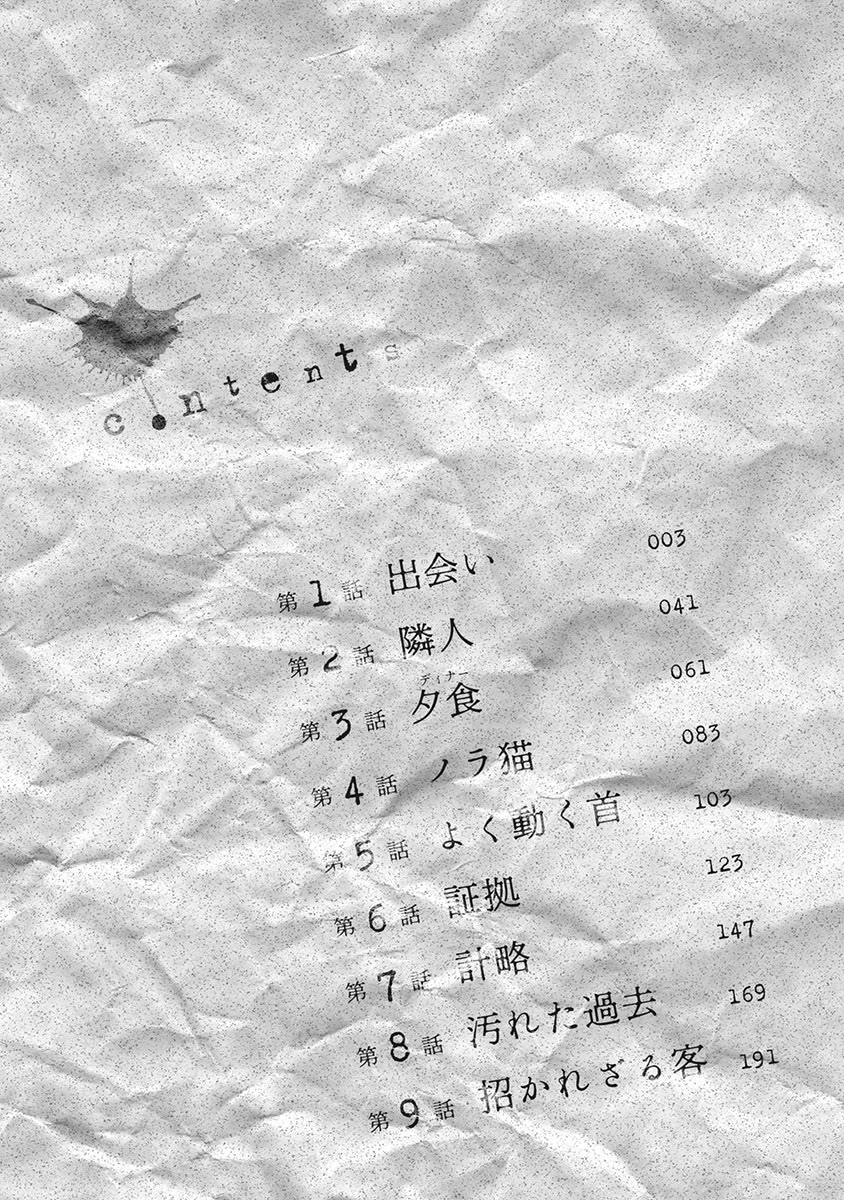 contents
第1話 出会い 003
第2話 隣人 041
ディナー
第3話 夕食 061
第4話 ノラ猫 083
第5話 よく動く首 103
第6話 証拠 123
第7話 計略 147
第8話 汚れた過去 169
第9話 招かれざる客 191